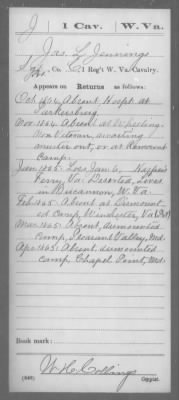 J 1 Cav. W. Va.
Jas. L. Jennings
Co. 1 Reg't W. Va. Cavalry.
Appears on Returns as follows:
Oct. 1864 Absent Hospt. at
Parkersburg
Nov 1864 Absent at Wheeling
West awaiting
muster out, or at Remount
Camp.
Jan 1865. Loss Jan 6, Harpers
Ferry, Va. Deserted, Lives
in Buccannon, W. Va.
Feb 1865. Absent at Dismount-
ed Camp, Winchester, Va.
Mar 1865. Absent, dismounted
camp, Pleasant Valley, Md.
Apr 1865. Absent, dismounted
camp Chapel Point, Md.
Book mark:
W. H. Collings
(546) Copyist.